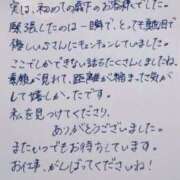 実は、初めての廊下のお客様でした。
緊張したのは一瞬で、とても魅力的
優しい さんにキュンキュンしていました。
ここでしかできない話もたくさんしましたね。
素顔が見れて、距離が縮まった気が
して嬉しかったです。
私を見つけてくださり
ありがとうございました。
またいつでもお待ちしています。
お仕事、がんばってくださいね！